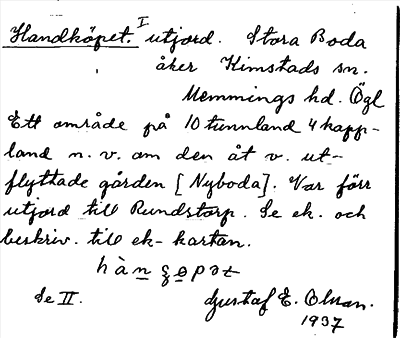 Handköpet. I utjord. Stora Boda
åker Kimstads sn.
Memmings hd. Ögl
Ett område på 10 tunnland 4 kapp-
land n. v. om den åt v. ut-
flyttade gården [Nyboda]. Var förr
utjord till Rundstorp. Se ek. och
beskriv. till ek-kartan.
Se II. Gustaf E. Olsson.
1937